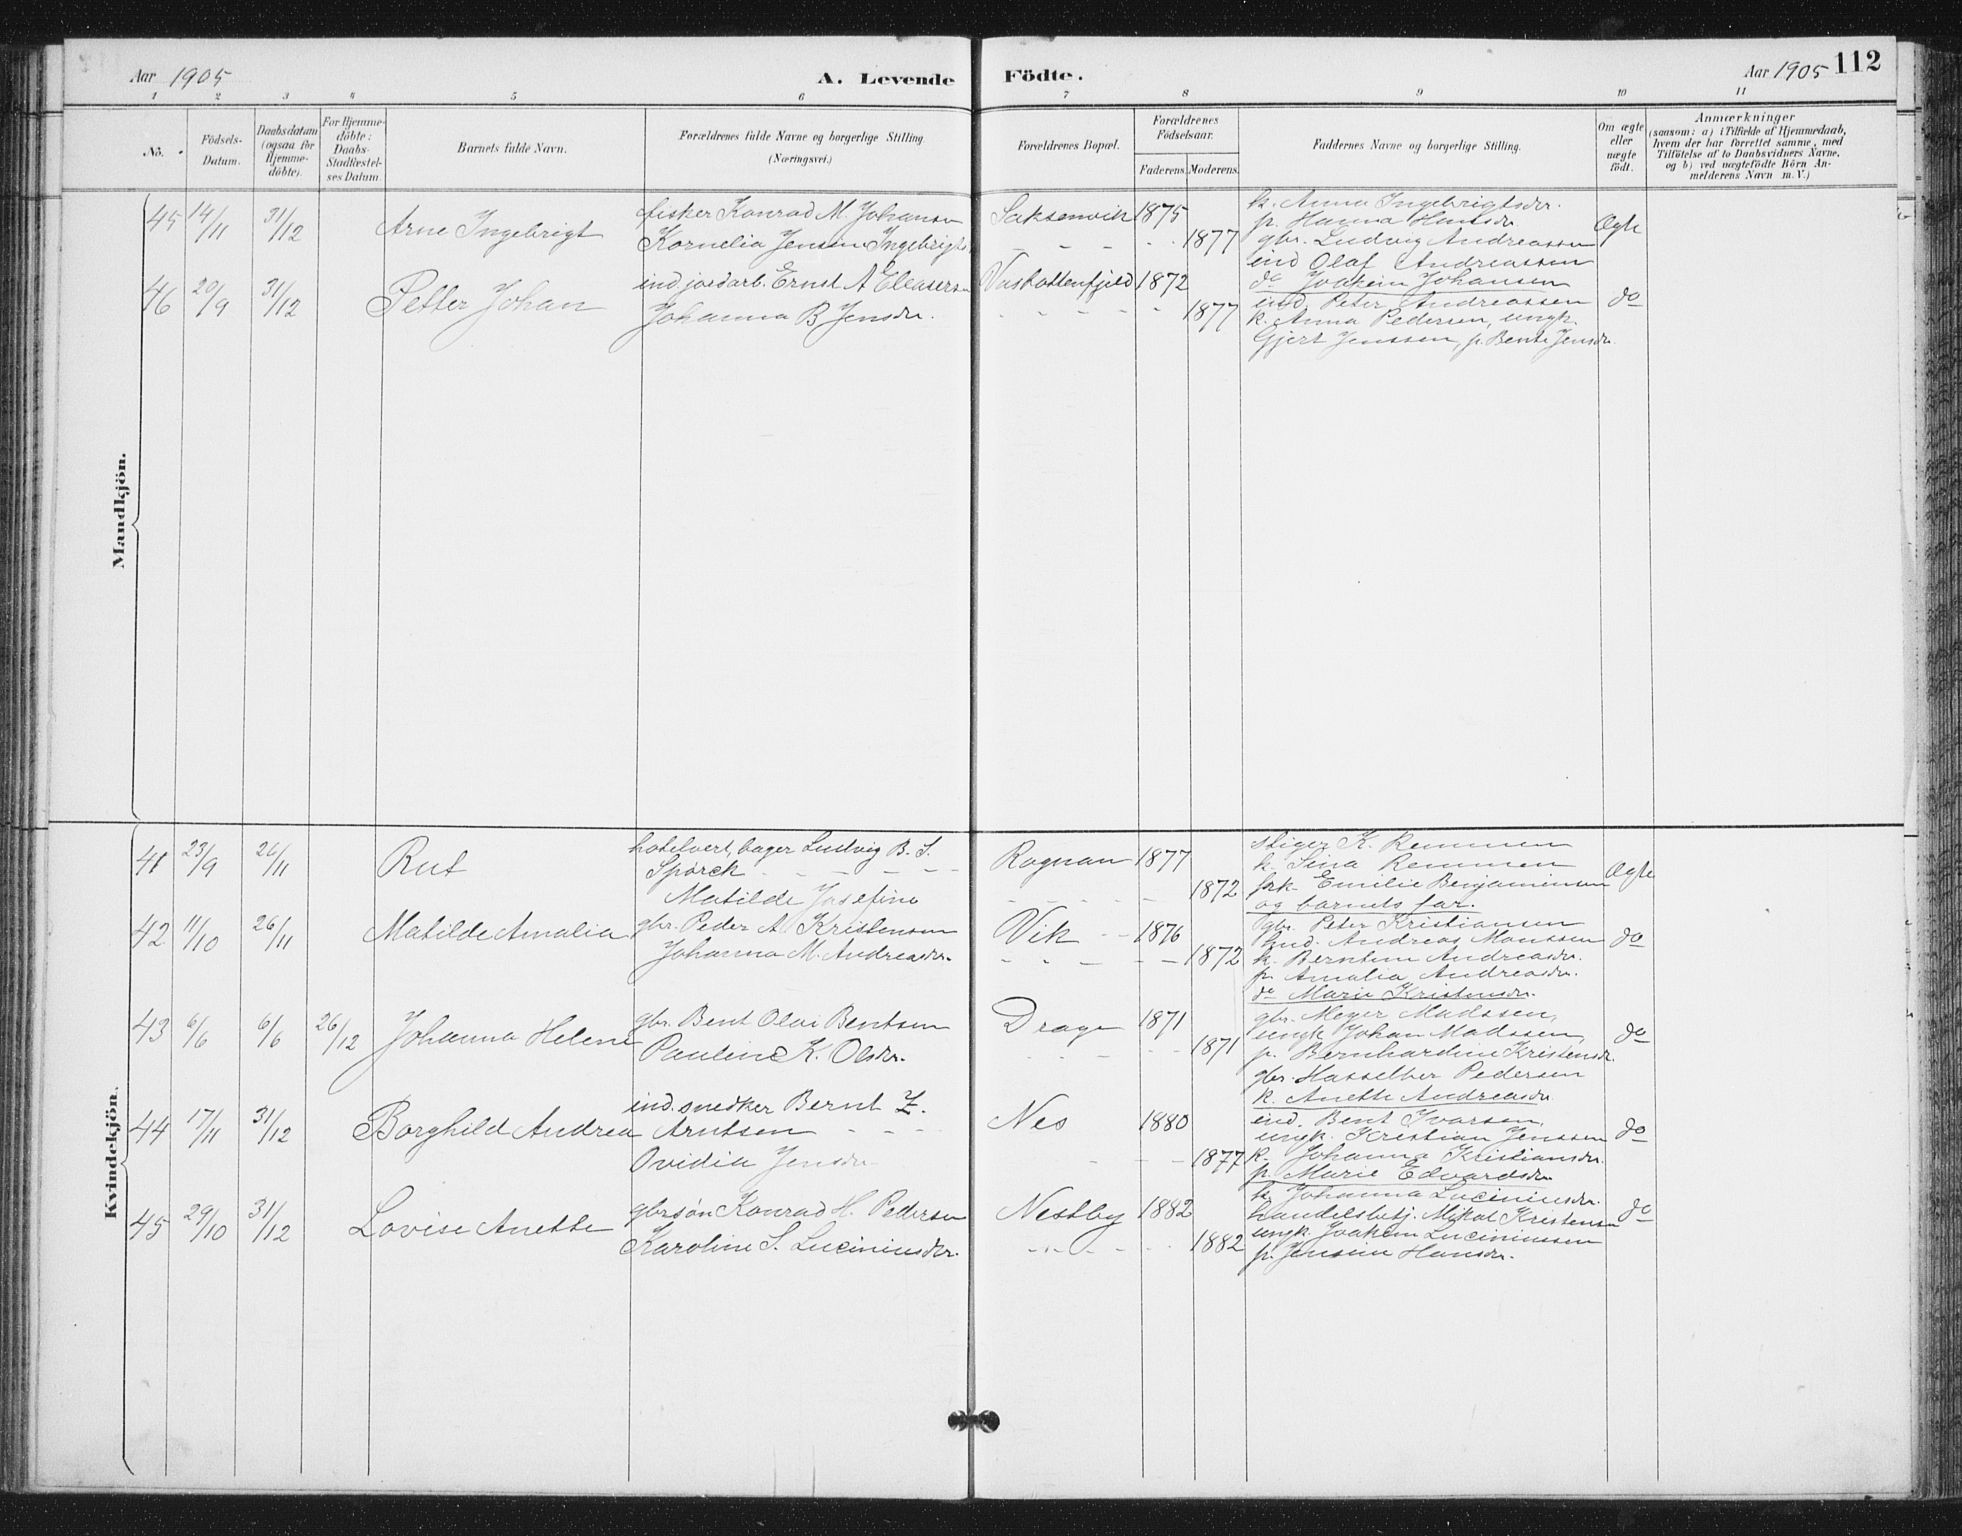 Aar 1905
A. Levende Födte.
Aar 1905 112
1 2 3 4 5 6 7 8 9 10 11
No.
Födsels-Datum.
Daabsdatum (ogsaa for Hjemme-döbte).
For Hjemme-döbte: Daabs-Stadfæstel-ses Datum
Barnets fulde Navn.
Forældrenes fulde Navne og borgerlige Stilling (Næringsvei.)
Forældrenes Bopæl.
Forældrenes Födselsaar.
Faderens. Moderens.
Faddernes Navne og borgerlige Stilling.
Om ægte eller uægte födt.
Anmærkninger
(saasom: a) i Tilfælde af Hjemmedaab, hvem der har forrettet samme, med Tilföielse af to Daabsvidners Navne, og b) ved uægtefödte Börn An-melderens Navn m.V.)
Mandkjön.
45 14/11 31/12 Arne Ingebrigt
fisker Konrad M. Johansen
Kornelia Jensen Ingebrigts
Saksenvik 1875
1877
k. Anna Ingebrigtsdr.
p. Hanna Hansdr
gbr. Ludvig Andreassen
ind Olaf Andreassen
do Joakim Johansen
Ægte
46 20/9 31/12 Petter Johan
ind. jordarb. Ernst A Eleasersen
Johanna B Jensdr.
Vasbottenfjeld 1872
1877
ind. Peter Andreassen
k. Anna Pedersen, ungk.
Gjert Jenssen, p. Bente Jensdr.
do
Kvindekjön.
41 23/9 26/11 Rut
hotelvert, bager Ludvig B. S.
Spørck
Matilde Josefine
Rognan 1877
1872
stiger K. Remmen
k. Sina Remmen
frk. Emilie Benjaminsen
og barnets far.
Ægte
42 11/10 26/11 Matilde Amalia
gbr. Peder A Kristensen
Johanna M. Andreasdr.
Vik 1876
1872
gbr. Peter Kristiansen
ind. Andreas Monssen
k. Berntine Andreasdr.
p. Amalia Andreasdr.
do Marie Kristensdr.
do
43 6/6 6/6 26/12 Johanna Helene
gbr. Bent Olai Bentsen
Pauline K. Olsdr.
Drage 1871
1871
gbr. Meyer Madssen,
ungk Johan Madssen,
p. Bernhardine Kristensdr.
gbr. Hasselber Pedersen
k. Anette Andreasdr
do
44 17/11 31/12 Borghild Andrea
ind. snedker Bernt Z.
Arntsen
Ovidia Jensdr
Nes 1880
1877
ind. Bent Ivarsen,
ungk. Kristian Jenssen
k. Johanna Kristiansdr.
p. Marie Edvardsdr
do
45 29/10 31/12 Lovise Anette
gbrsøn Konrad H. Pedersen
Karoline S. Luciniusdr.
Nestby 1882
1882
k. Johanna Luciniusdr.
handelsbetj. Mikal Kristensen
ungk. Joakim Luciniussen
p. Jensine Hansdr.
do